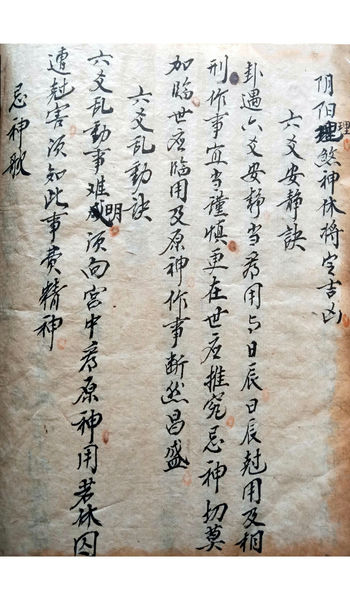 阴伯理煞神休将定吉凶
六爻安静訣
卦遇六爻安静当看用与日辰日辰尅用及相
刑作事宜当謹慎更在世应推究忌神切莫
加临世应临用及原神作事断然昌盛
六爻乱動訣
六爻乱動事难明须向宫中看原神用若休囚
遭尅害须知此事费精神
忌神歌